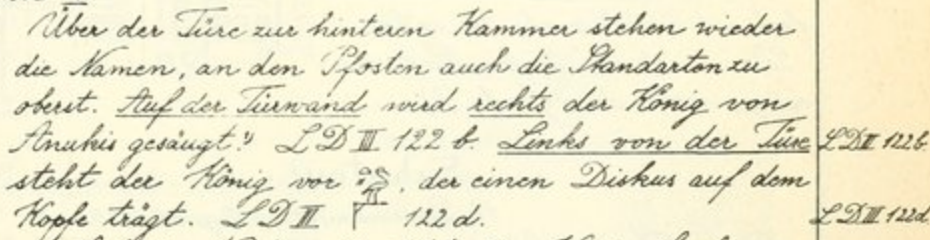 Über der Türe zur hinteren Kammer stehen wieder
die Namen, an den Pfosten auch die Standarten zu
oberst. Auf der Türwand wird rechts der König von
Anukis gesäugt.¹⁾ LD III 122 b. Links von der Türe LD III 122 b.
steht der König vor , der einen Diskus auf dem
Kopfe trägt. LD III 122 d. LD III 122 d